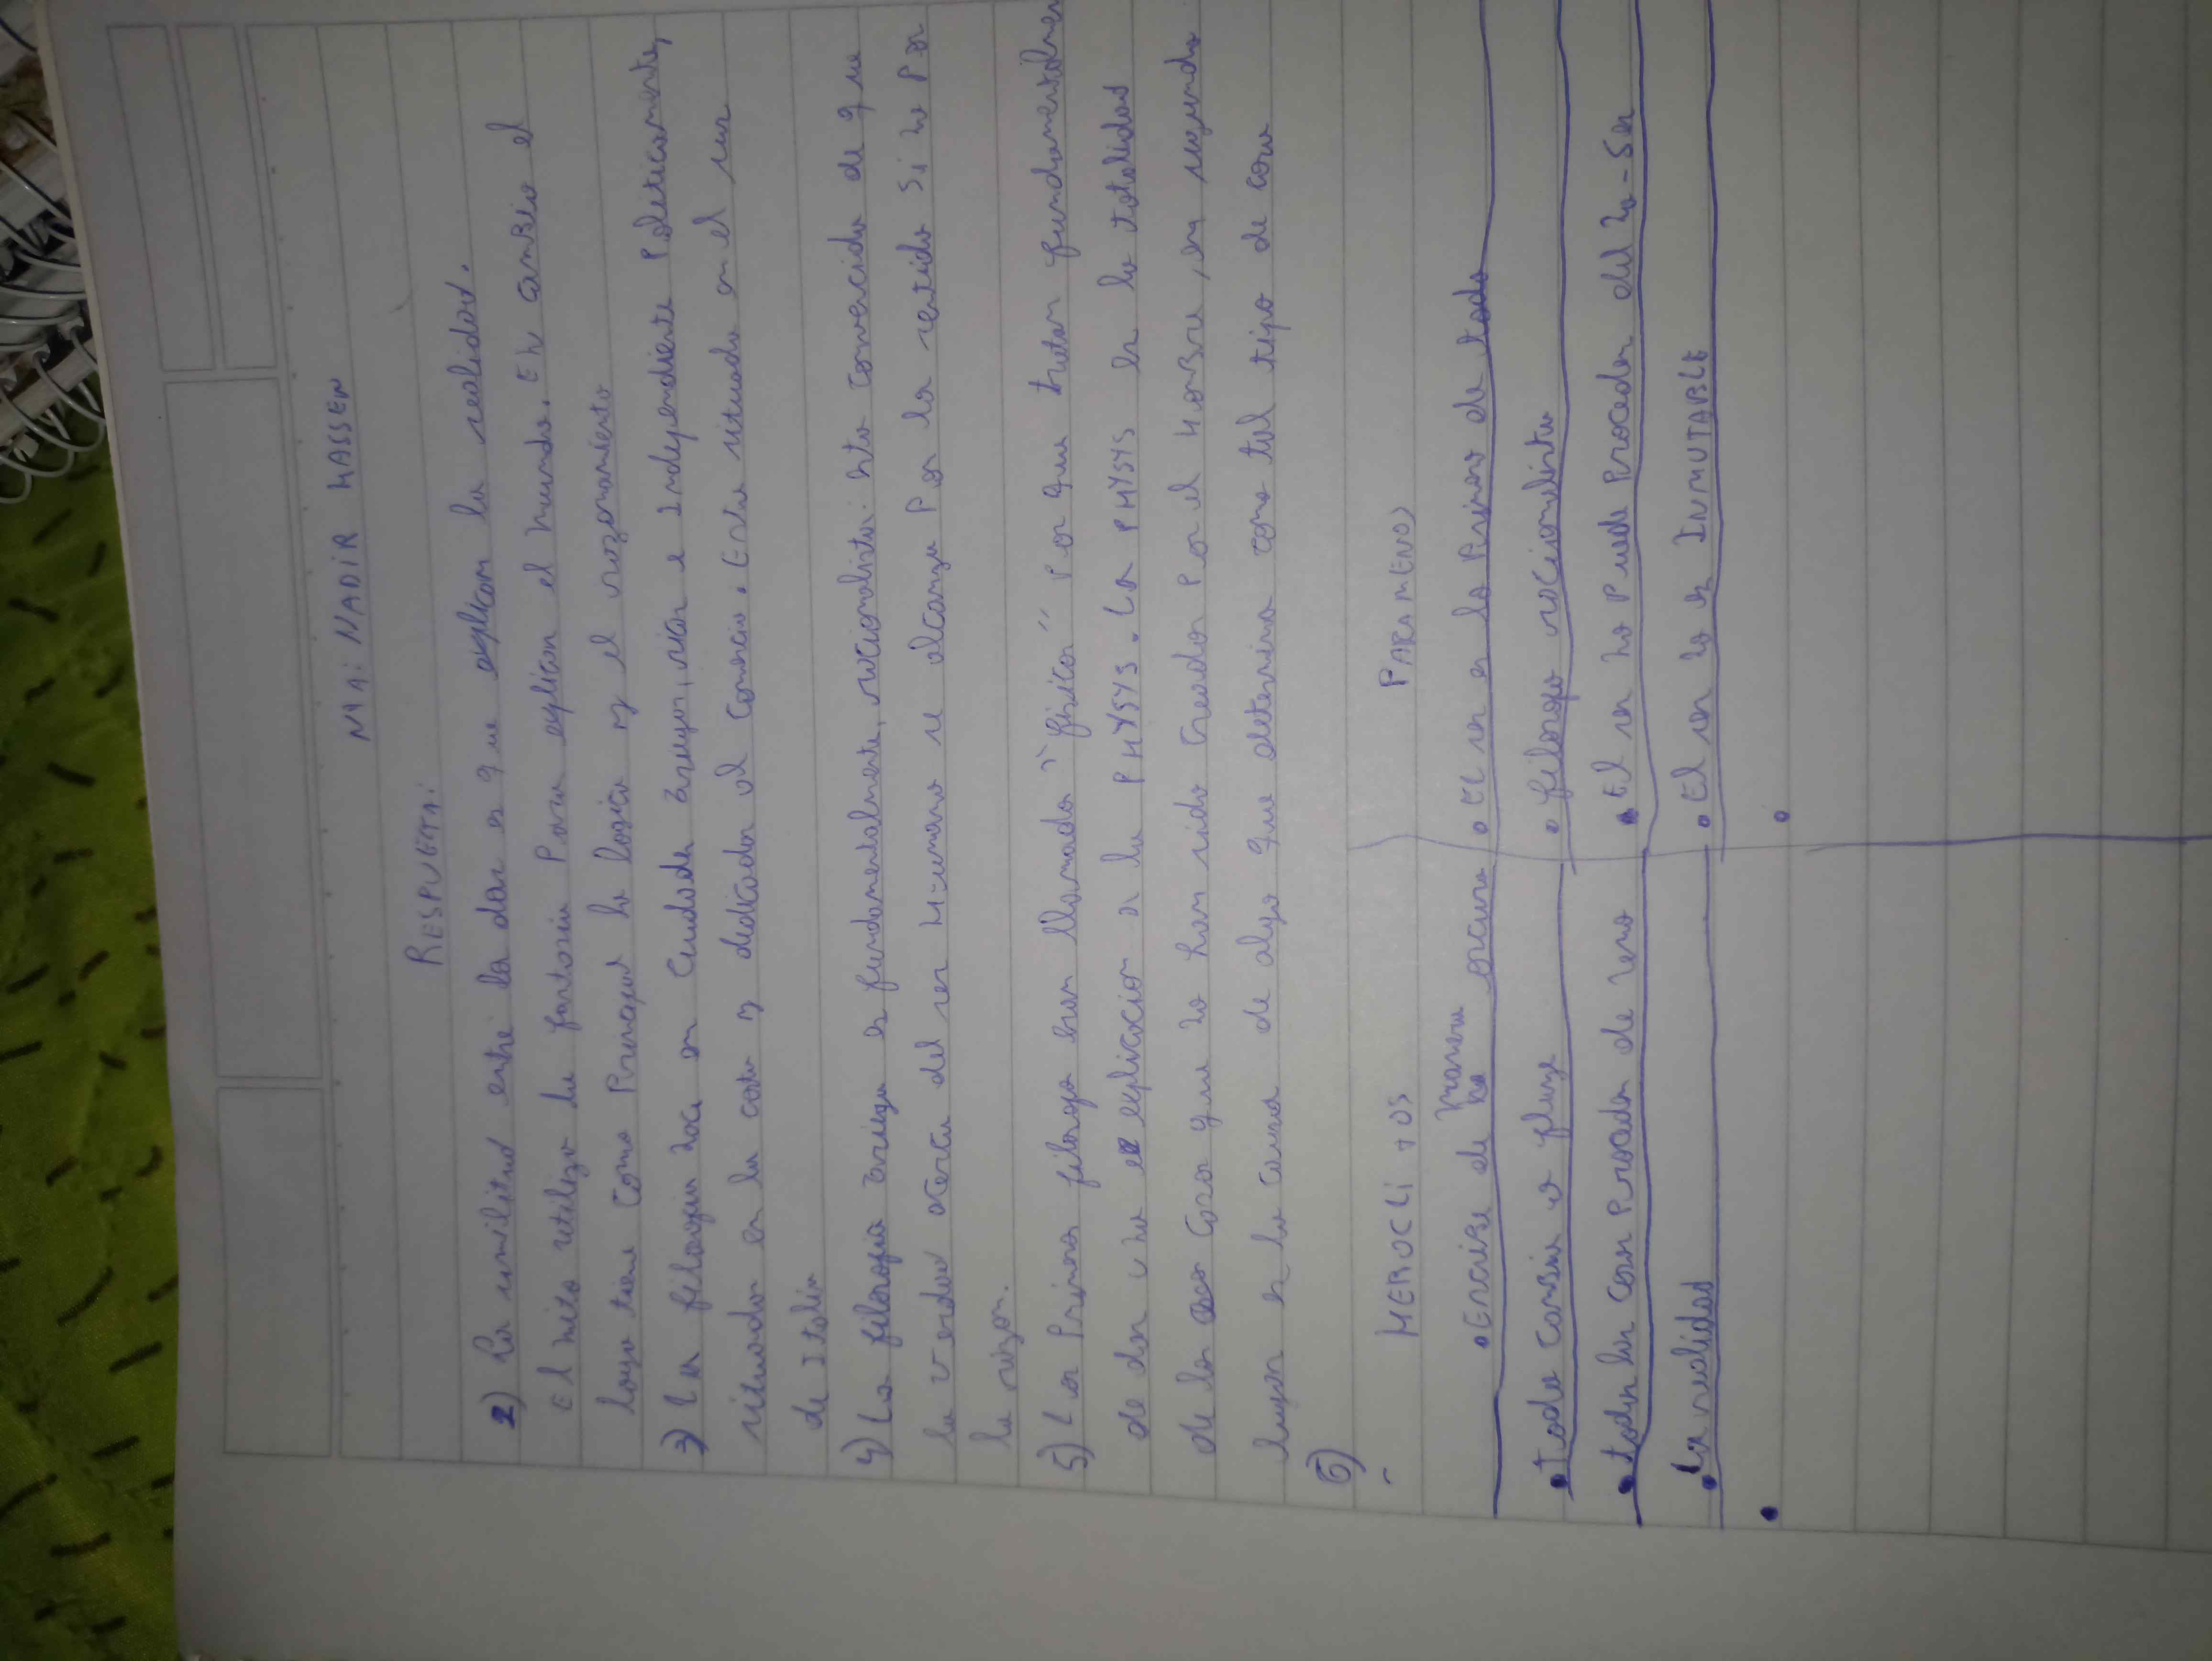 NYA: NADIR HASSEN
RESPUESTA:
2) La similitud entre los dos es que explican la realidad.
El mito utilizo la fantasia Para explicar el mundo. En cambio el
logo tiene como Principal la logica y el razonamiento
3) La filosofia naca en Ciudades Griegas, ricas e independiente Politicamente,
situadas en la costa y dedicadas al Comercio. Esta situada en el sur
de Italia
4) La filosofia Griega es fundamentalmente, racionalista: esta convencida de que
la verdad acerca del ser Humano se alcanza Por los sentido si no Por
la razon.
5) Los Primeros filosofos eran llamados "fisicos" Por que tratan fundamentalmen
de dar una explicacion a la PHYSYS. La PHYSYS es la totalidad
de las cosas que no han sido creadas Por el Hombre, en segundo
lugar es la causa de algo que determina como tal tipo de cosa
6)
HEROCLITOS PARAMENOS
• Escribe de manera oscura • El ser es lo Primero de todo
• Todo cambia o fluye • filosofo racionalista
• todas las cosas Proceden de seno • El ser no Puede Proceder del no-ser
• La realidad • El ser no es INMUTABLE